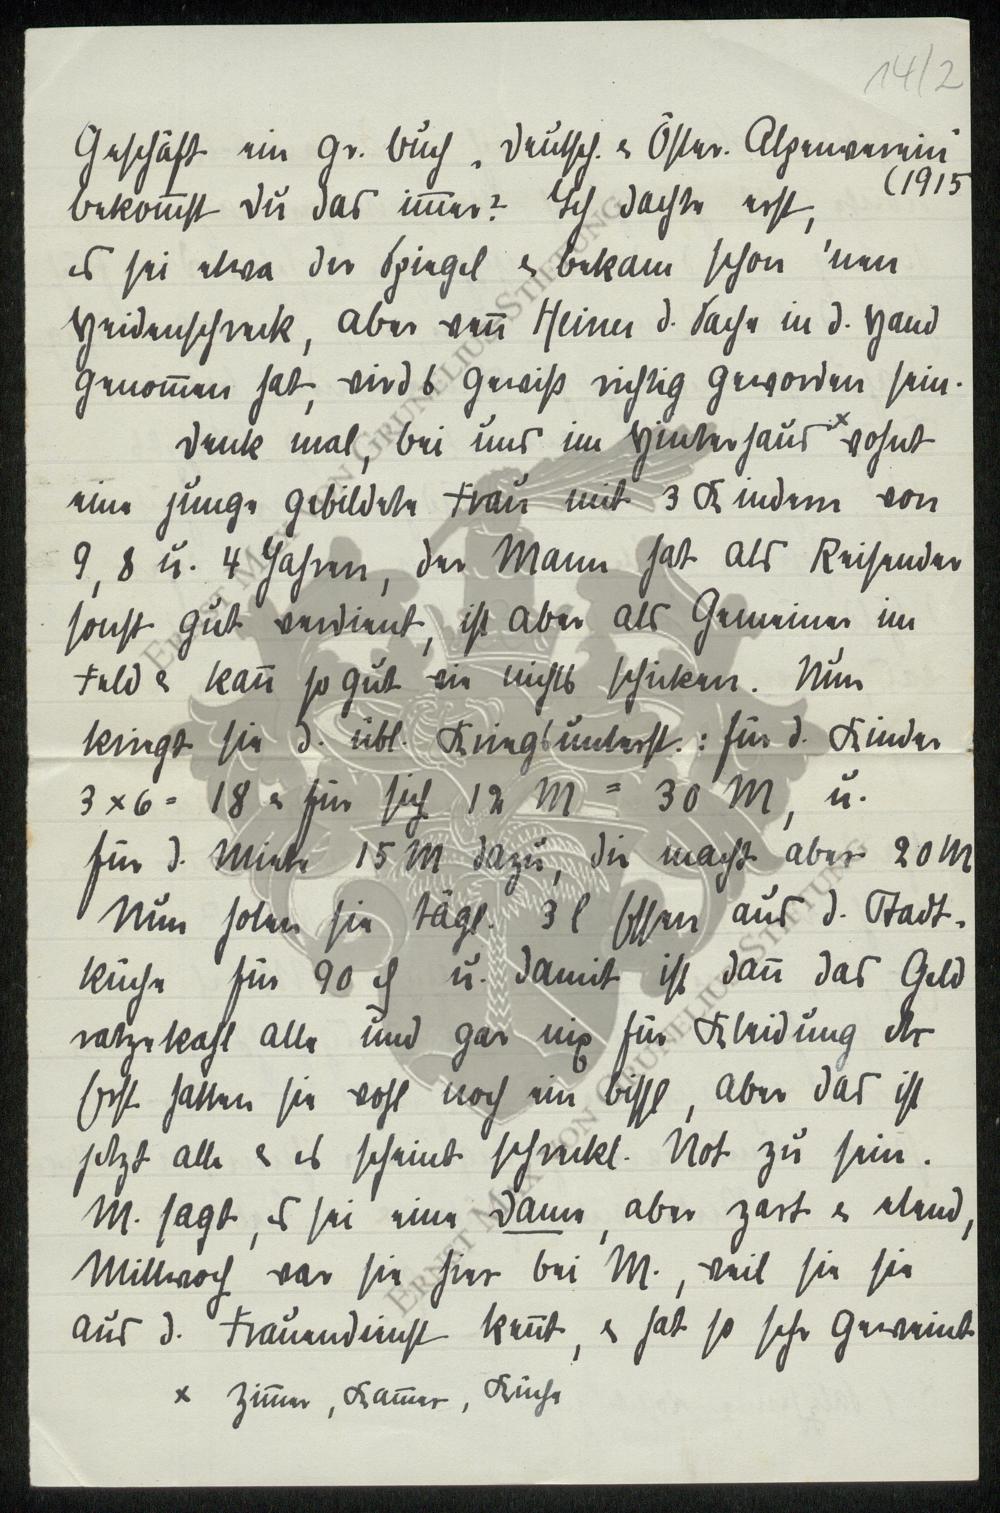 14/2
Geschäft ein gr. Buch „Deutsch. & Öster. Alpenverein"
(1915
bekom̅st du das im̅er? Ich dachte erst,
es sei etwa der Spiegel & bekam schon 'nen
Heidenschreck, aber wen̅ Heiner d. Sache in d. Hand
genom̅en hat, wirds gewiß richtig geworden sein.
Denk mal, bei uns im Hinterhaus x wohnt
eine junge gebildete Frau mit 3 Kindern von
9, 8 u. 4 Jahren, der Mann hat als Reisender
sonst gut verdient, ist aber als Gemeiner im
Feld & kan̅ so gut wie nichts schicken. Nun
kriegt sie d. übl. Kriegsunterst.: für d. Kinder
3 x 6 = 18 & für sich 12 M = 30 M, u.
für d. Miete 15 M dazu, die macht aber 20 M
Nun holen sie tägl. 3 l Essen aus d. Stadt-
küche für 90 ₰ u. damit ist dan̅ das Geld
ratzekahl alle und gar nix für Kleidung etc
Erst hatten sie wohl noch ein bissl, aber das ist
jetzt alle & es scheint schreckl. Not zu sein.
M. sagt, es sei eine Dame, aber zart & elend,
Mittwoch war sie hier bei M., weil sie sie
aus d. Frauendienst ken̅t, & hat so sehr geweint
x Zim̅er, Kam̅er, Küche
ERNST MAX VON GRUNELIUS-STIFTUNG
ERNST MAX VON GRUNELIUS-STIFTUNG